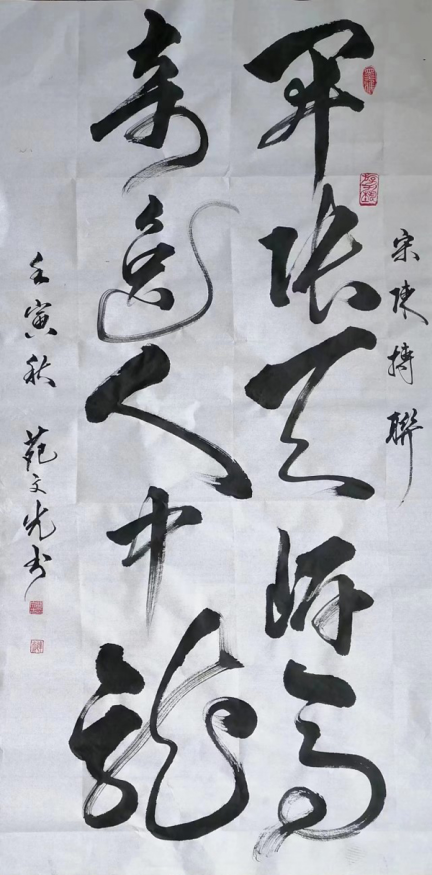 宋陳摶聯
開張天岸馬
奇逸人中龍
壬寅秋 苑文書